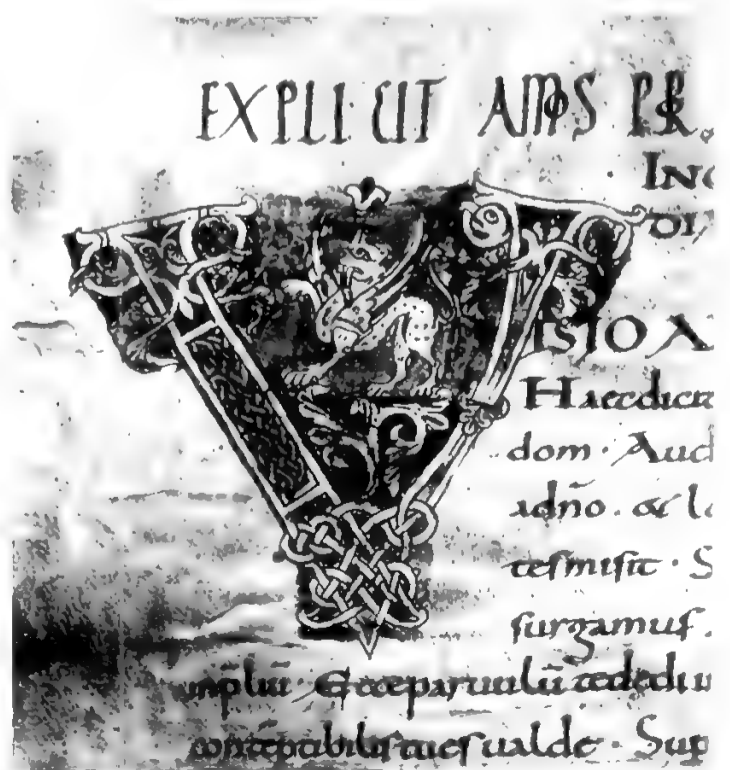 EXPLICIT AMOS PR
INC
DI
VISIO A
Haec dicit
dom · Aud
ad dño . & le
tes misit · S
surgamus .
mpliū · Ecce paruulū te dedi
contēptibilis tu es ualde · Sup